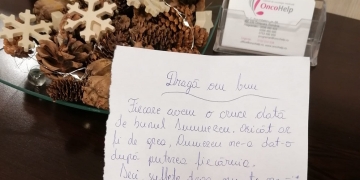 OncoHelp
Dragă om bun
Fiecare avem o cruce dată
de bunul Dumnezeu. Oricât ar
fi de grea, Dumnezeu ne-a dat-o
după puterea fiecăruia.
Deci suflete drag nu te